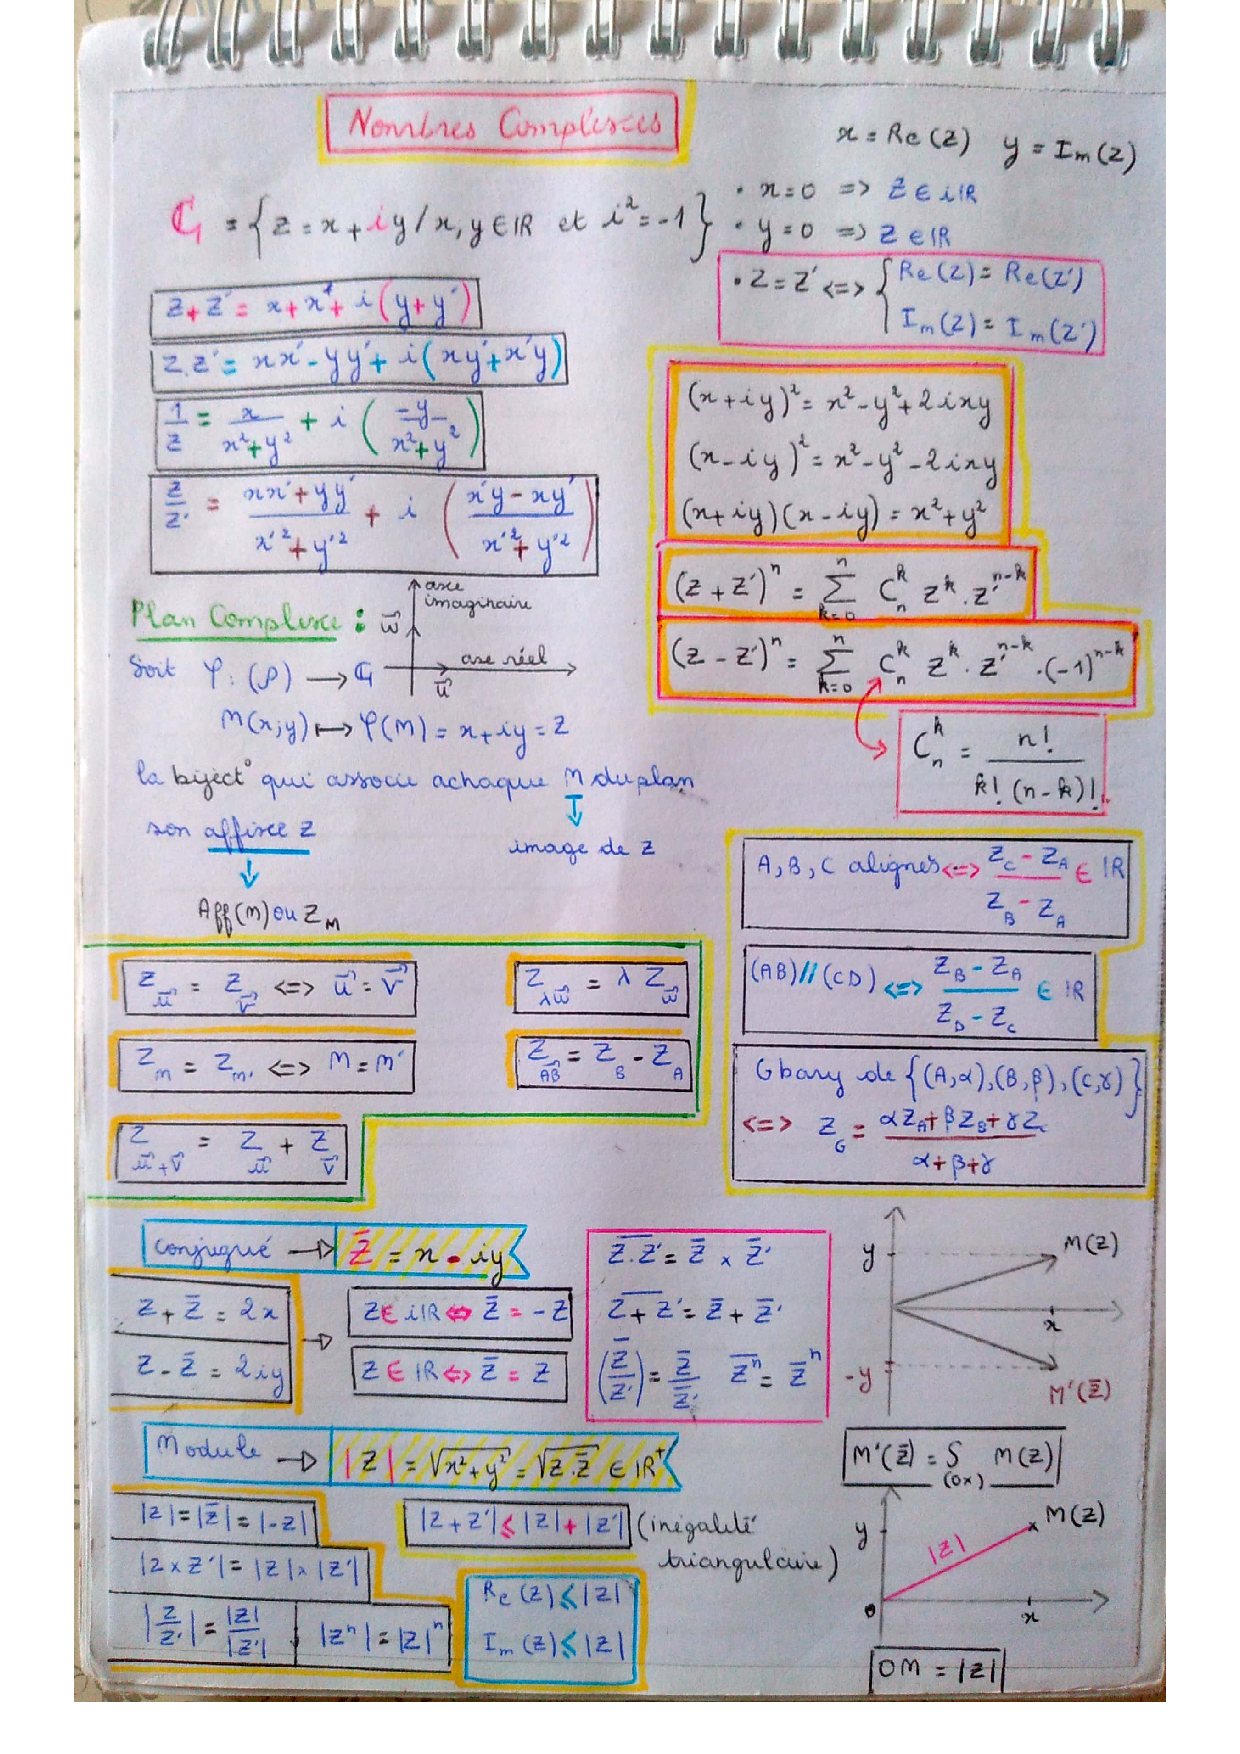 Nombres Complexes
x = Re(z)   y = Im(z)
ℂ = { z = x + iy / x, y ∈ IR et i² = -1 }
• x = 0 => z ∈ iIR
• y = 0 => z ∈ IR
• z = z' <=> { Re(z) = Re(z')
Im(z) = Im(z')
z + z' = x + x' + i (y + y')
z.z' = xx' - yy' + i (xy' + x'y)
1/z = x/(x² + y²) + i (-y/(x² + y²))
z/z' = (xx' + yy')/(x'² + y'²) + i ((x'y - xy')/(x'² + y'²))
(x + iy)² = x² - y² + 2ixy
(x - iy)² = x² - y² - 2ixy
(x + iy)(x - iy) = x² + y²
(z + z')ⁿ = Σ_{k=0}^{n} C_n^k z^k . z'^{n-k}
(z - z')ⁿ = Σ_{k=0}^{n} C_n^k z^k . z'^{n-k} . (-1)^{n-k}
C_n^k = n! / (k! (n-k)!)
Plan Complexe :
axe imaginaire
w⃗
axe réel
u⃗
Soit φ : (P) → ℂ
M(x,y) ↦ φ(M) = x + iy = z
la biject° qui associe a chaque M du plan
son affixe z
image de z
Aff(M) ou z_M
A, B, C alignés <=> (z_C - z_A)/(z_B - z_A) ∈ IR
(AB) // (CD) <=> (z_B - z_A)/(z_D - z_C) ∈ IR
G bary de {(A,α), (B,β), (C,γ)}
<=> z_G = (αz_A + βz_B + γz_C)/(α + β + γ)
z_u⃗ = z_v⃗ <=> u⃗ = v⃗
z_λw⃗ = λ z_w⃗
z_M = z_M' <=> M = M'
z_AB⃗ = z_B - z_A
z_u⃗+v⃗ = z_u⃗ + z_v⃗
Conjugué → z̄ = x - iy
z + z̄ = 2x
z - z̄ = 2iy
z ∈ iIR ⇔ z̄ = -z
z ∈ IR ⇔ z̄ = z
\overline{z.z'} = z̄ × z̄'
\overline{z + z'} = z̄ + z̄'
\overline{(z/z')} = z̄/z̄'   \overline{zⁿ} = z̄ⁿ
y
M(z)
x
-y
M'(z̄)
M'(z̄) = S_(Ox) M(z)
Module → |z| = √(x² + y²) = √(z.z̄) ∈ IR⁺
|z| = |z̄| = |-z|
|z × z'| = |z| × |z'|
|z/z'| = |z|/|z'|
|zⁿ| = |z|ⁿ
|z + z'| ≤ |z| + |z'| (inégalité
triangulaire)
Re(z) ≤ |z|
Im(z) ≤ |z|
y
|z|
M(z)
o
x
OM = |z|